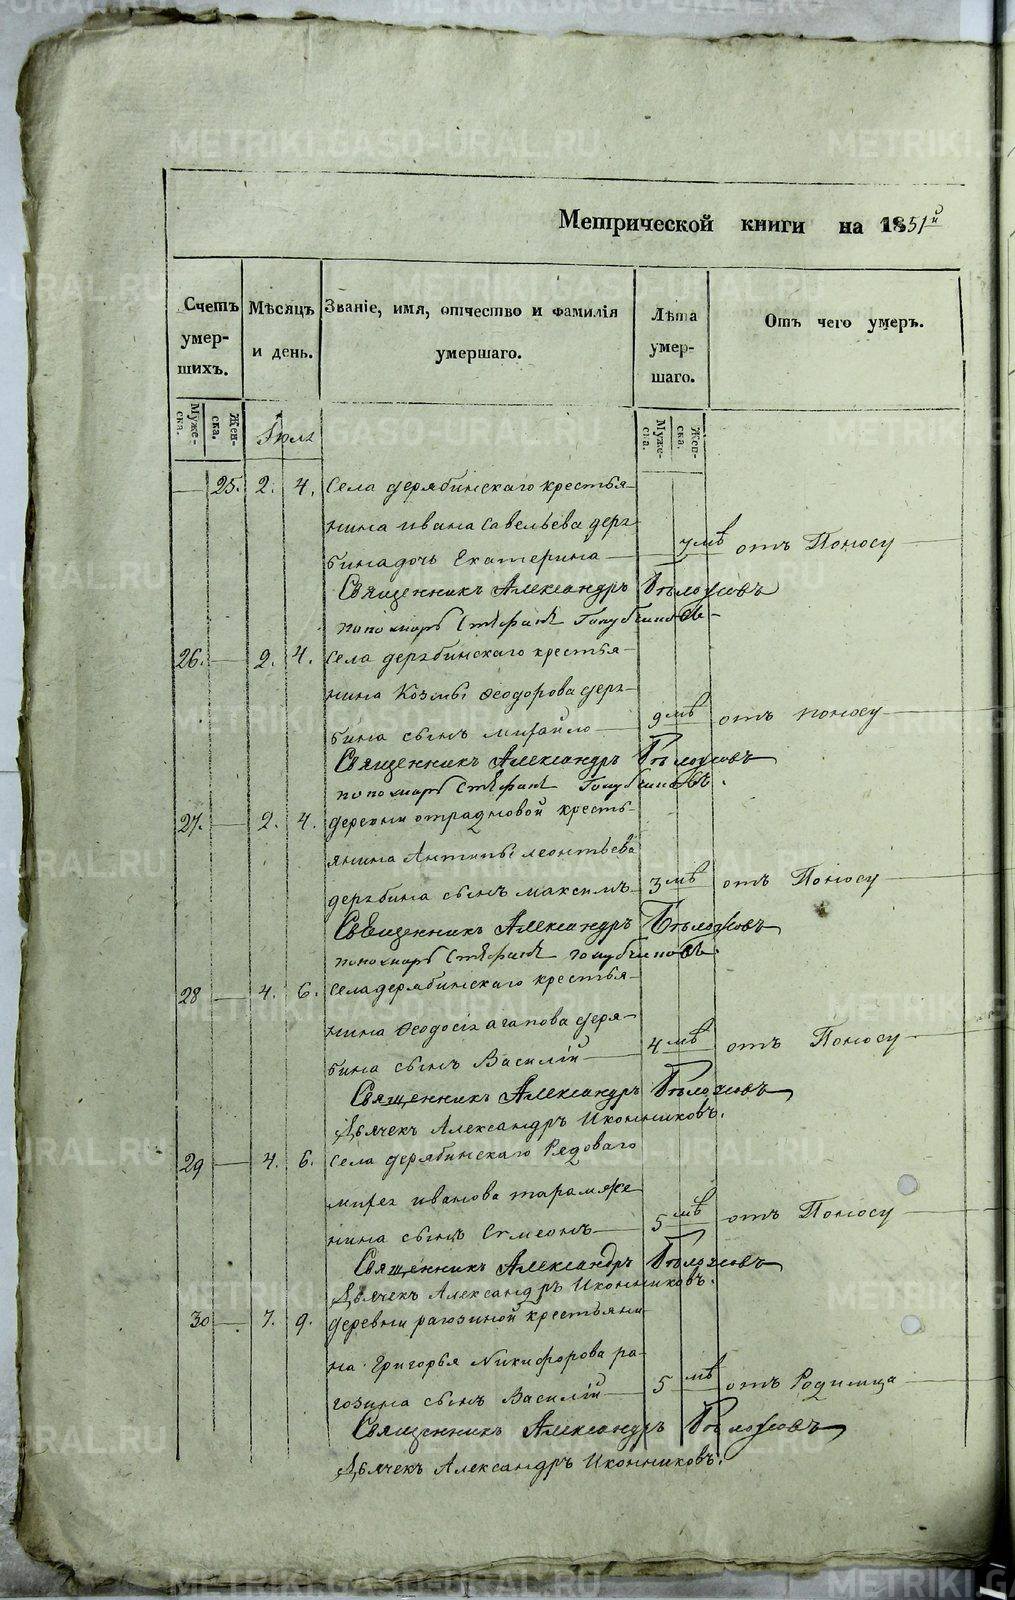 METRIKI.GASO-URAL.RU
Метрической книги на 1851й
Счетъ умер-шихъ.
Мѣсяцъ и день.
Званіе, имя, отчество и фамилія умершаго.
Лѣта умер-шаго.
Отъ чего умеръ.
Муже-ска.
Жен-ска.
Іюль
Муже-ска.
Жен-ска.
— 25. 2. 4. Села дерябинскаго крестья-
нина ивана савельева деря-
бина дочь Екатерина — 7 мѣ отъ Поносу —
Священникъ Александръ Бѣлоусовъ
пономарь Стефанъ Голубчиковъ
26. — 2. 4. Села дерябинскаго крестья-
нина Козмы Ѳеодорова деря-
бина сынъ михайло — 9 мѣ отъ поносу —
Священникъ Александръ Бѣлоусовъ
пономарь Стефанъ Голубчиковъ.
27. — 2. 4. деревни отрадновой кресть-
янина Антипы леонтьева
дерябина сынъ максимъ 3 мѣ отъ Поносу —
Священникъ Александръ Бѣлоусовъ
пономарь Стефанъ голубчиковъ.
28 — 4. 6. села дерябинскаго крестья-
нина Ѳеодосія агапова деря-
бина сынъ Василій — 4 мѣ отъ Поносу —
Священникъ Александръ Бѣлоусовъ
Дьячекъ Александръ Иконниковъ.
29 — 4. 6. села дерябинскаго Рядоваго
ивана иванова
нина сынъ Симеонъ — 5 мѣ отъ Поносу —
Священникъ Александръ Бѣлоусовъ
Дьячекъ Александръ Иконниковъ.
30 — 7. 9. деревни рагозиной крестьяни-
на Григорья Никифорова ра-
гозина сынъ Василій — 5 мѣ отъ Родимца —
Священникъ Александръ Бѣлоусовъ
Дьячекъ Александръ Иконниковъ.